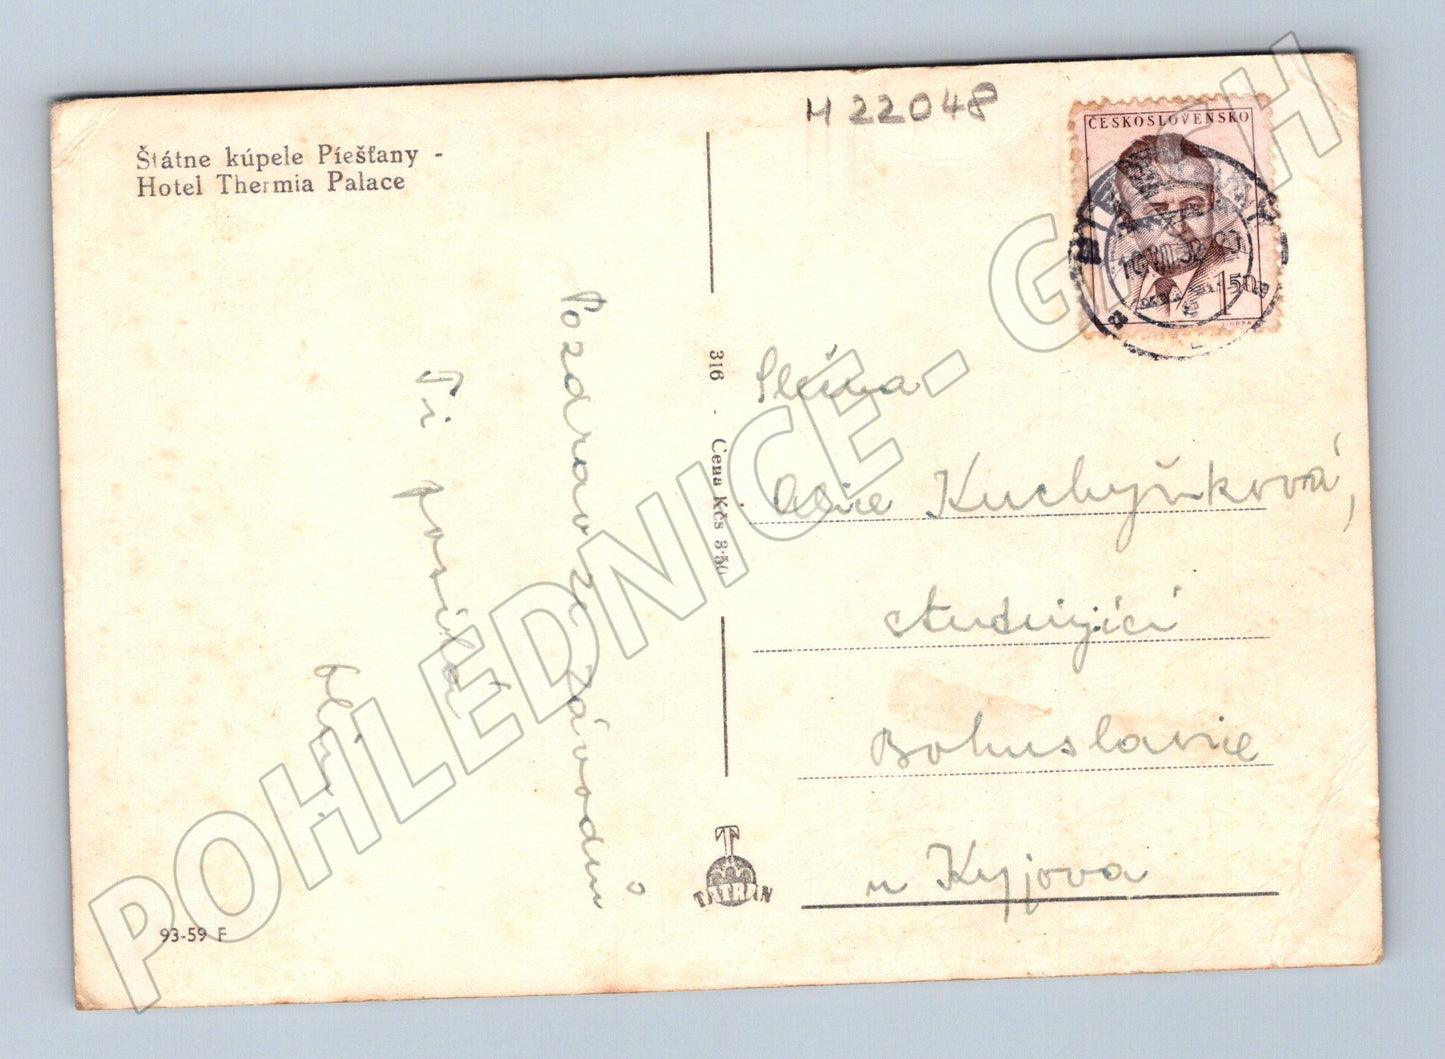 Štátne kúpele Piešťany -
Hotel Thermia Palace
H 22048
ČESKOSLOVENSKO
1 50
316 - Cena Kčs 3·50
Pozdrav ze závodům
Ti posílá
Slečna
Kuchyňková,
studující
Bohuslavice
u Kyjova
TATRAN
93-59 F
POHLEDNICE - G